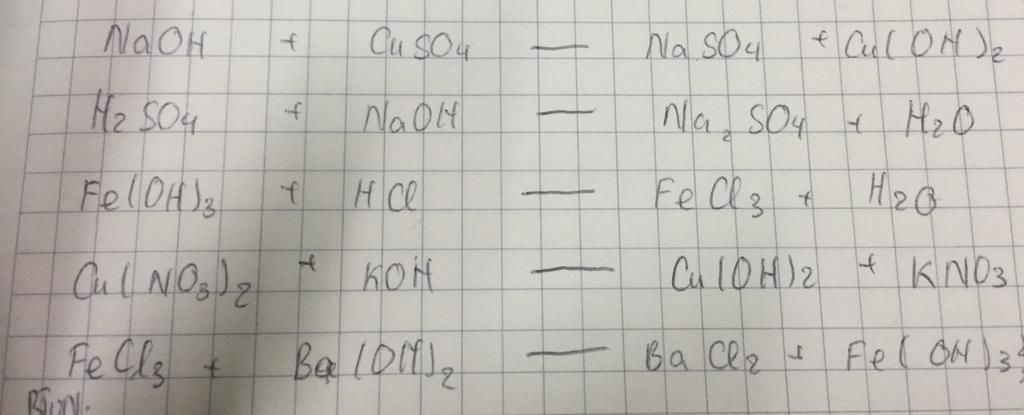 NaOH + CuSO4 — NaSO4 + Cu(OH)2
H2SO4 + NaOH — Na2SO4 + H2O
Fe(OH)3 + HCl — FeCl3 + H2O
Cu(NO3)2 + KOH — Cu(OH)2 + KNO3
FeCl3 + Ba(OH)2 — BaCl2 + Fe(OH)3